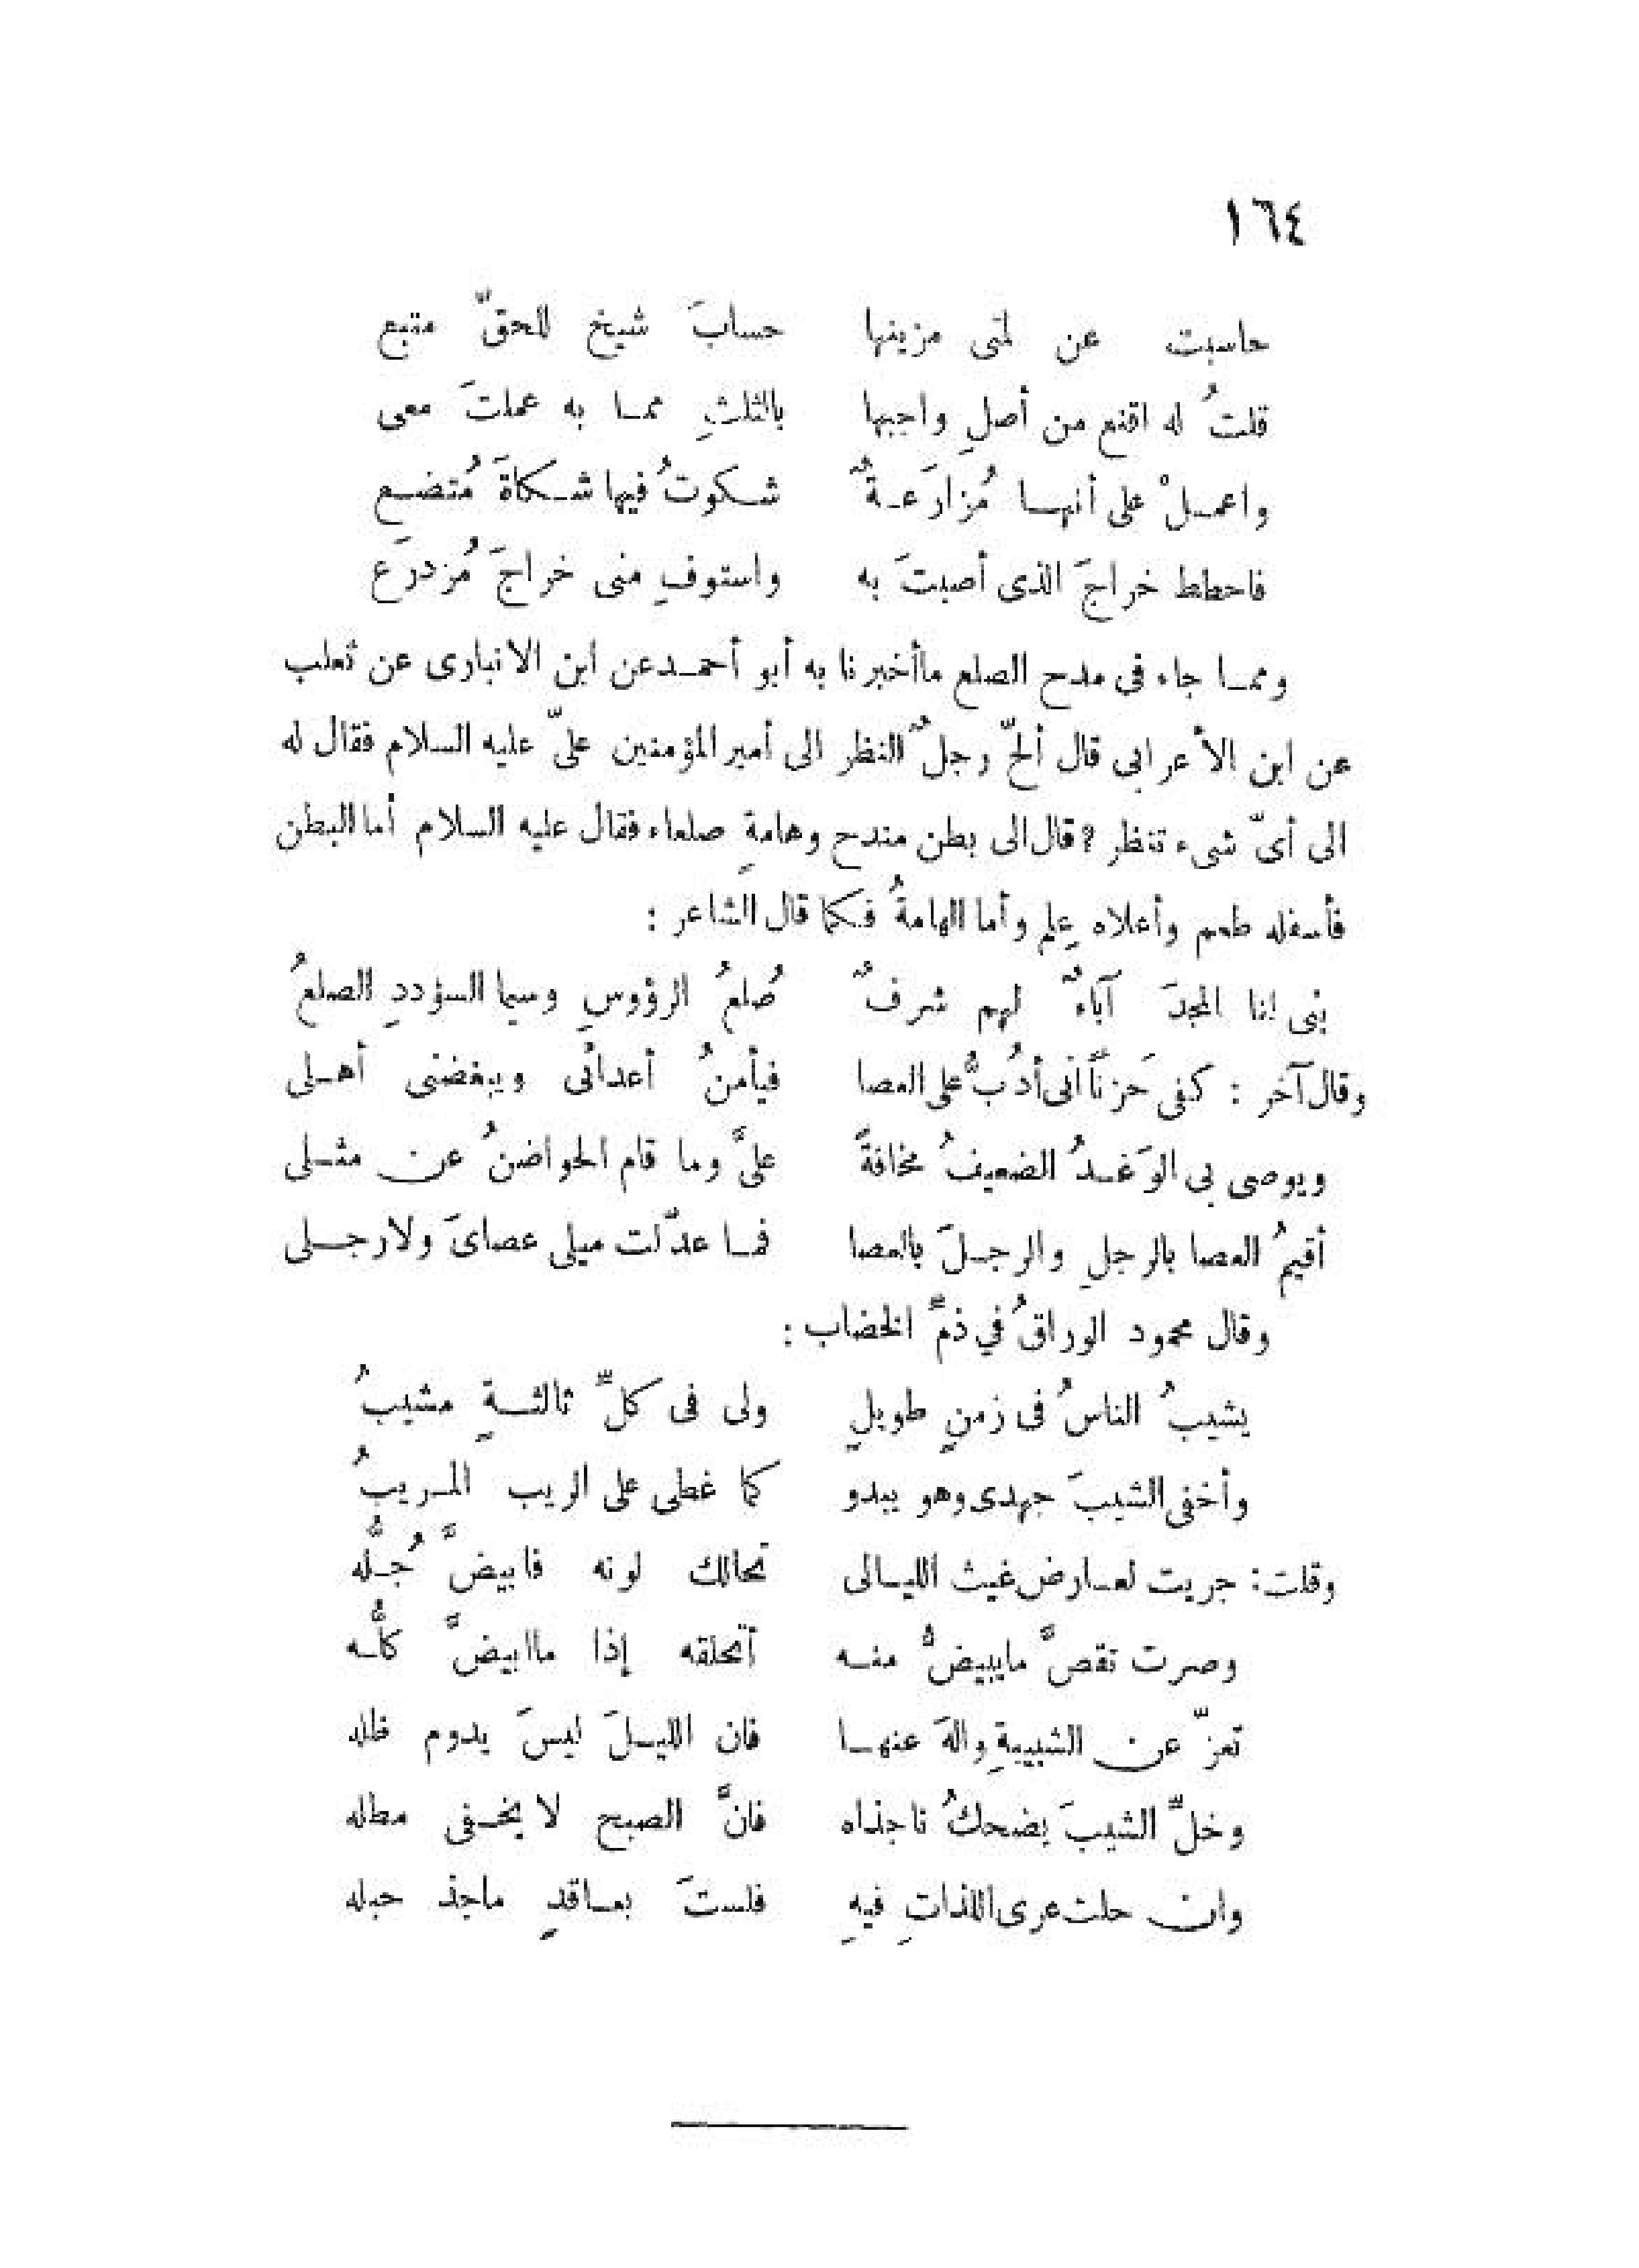 ١٦٤
حاسبت عن لمتى مزينها حسابَ شيخ للحقّ متبع
قلتُ له اقنع من أصلِ واجبها بالثلثِ ممـا به عملتَ معى
واعمـلْ على أنهـا مُزارَعـةٌ شـكوتُ فيها شـكاةَ مُتضـعِ
فاحطط خراجَ الذى أصبتَ به واستوفِ منى خراجَ مُزدرَع
وممـا جاء فى مدح الصلع ماأخبرنا به أبو أحمـدعن ابن الانبارى عن ثعلب
عن ابن الأعرابى قال ألحّ رجلٌ النظر الى أمير المؤمنين علىّ عليه السلام فقال له
الى أىّ شىء تنظر ؟ قال الى بطن مندح وهامةٍ صلعاء فقال عليه السلام أما البطن
فأسفله طعم وأعلاه عِلم وأما الهامةُ فـكما قال الشاعر :
بنى لنا المجدَ آباءٌ لهم شرفٌ صُلعُ الرؤوسِ وسيما السؤددِ الصلعُ
وقال آخر : كفى حَزناً أنى أدُبُّ على العصا فيأمنُ أعدائى ويبغضنى أهـلى
ويوصى بى الوَغـدُ الضعيفُ مخافةً علىَّ وما قام الحواضنُ عن مثـلى
أقيمُ العصا بالرجلِ والرجـلَ بالعصا فمـا عدّلت ميلى عصاىَ ولا رجـلى
وقال محمود الوراقُ في ذمِّ الخضاب :
يشيبُ الناسُ فى زمنٍ طويلٍ ولى فى كلِّ ثالثـةٍ مشيبُ
وأخفى الشيبَ جهدى وهو يبدو كما غطى على الريب المـريبُ
وقلت : جريت لعـارض غيث الليـالى تحالك لونه فابيضَّ جُـلُّه
وصرت تقصُّ مايبيضُّ منـه أتحلقه إذا ماابيضَّ كلُّـه
تعزّ عن الشبيبةِ والهَ عنهـا فان الليـلَ ليسَ يدوم ظله
وخلِّ الشيبَ يضحكُ ناجذاه فانَّ الصبح لا يخـفى مطله
وان حلت عرى اللذاتِ فيهِ فلستَ بعـاقدٍ ماجذ حبله